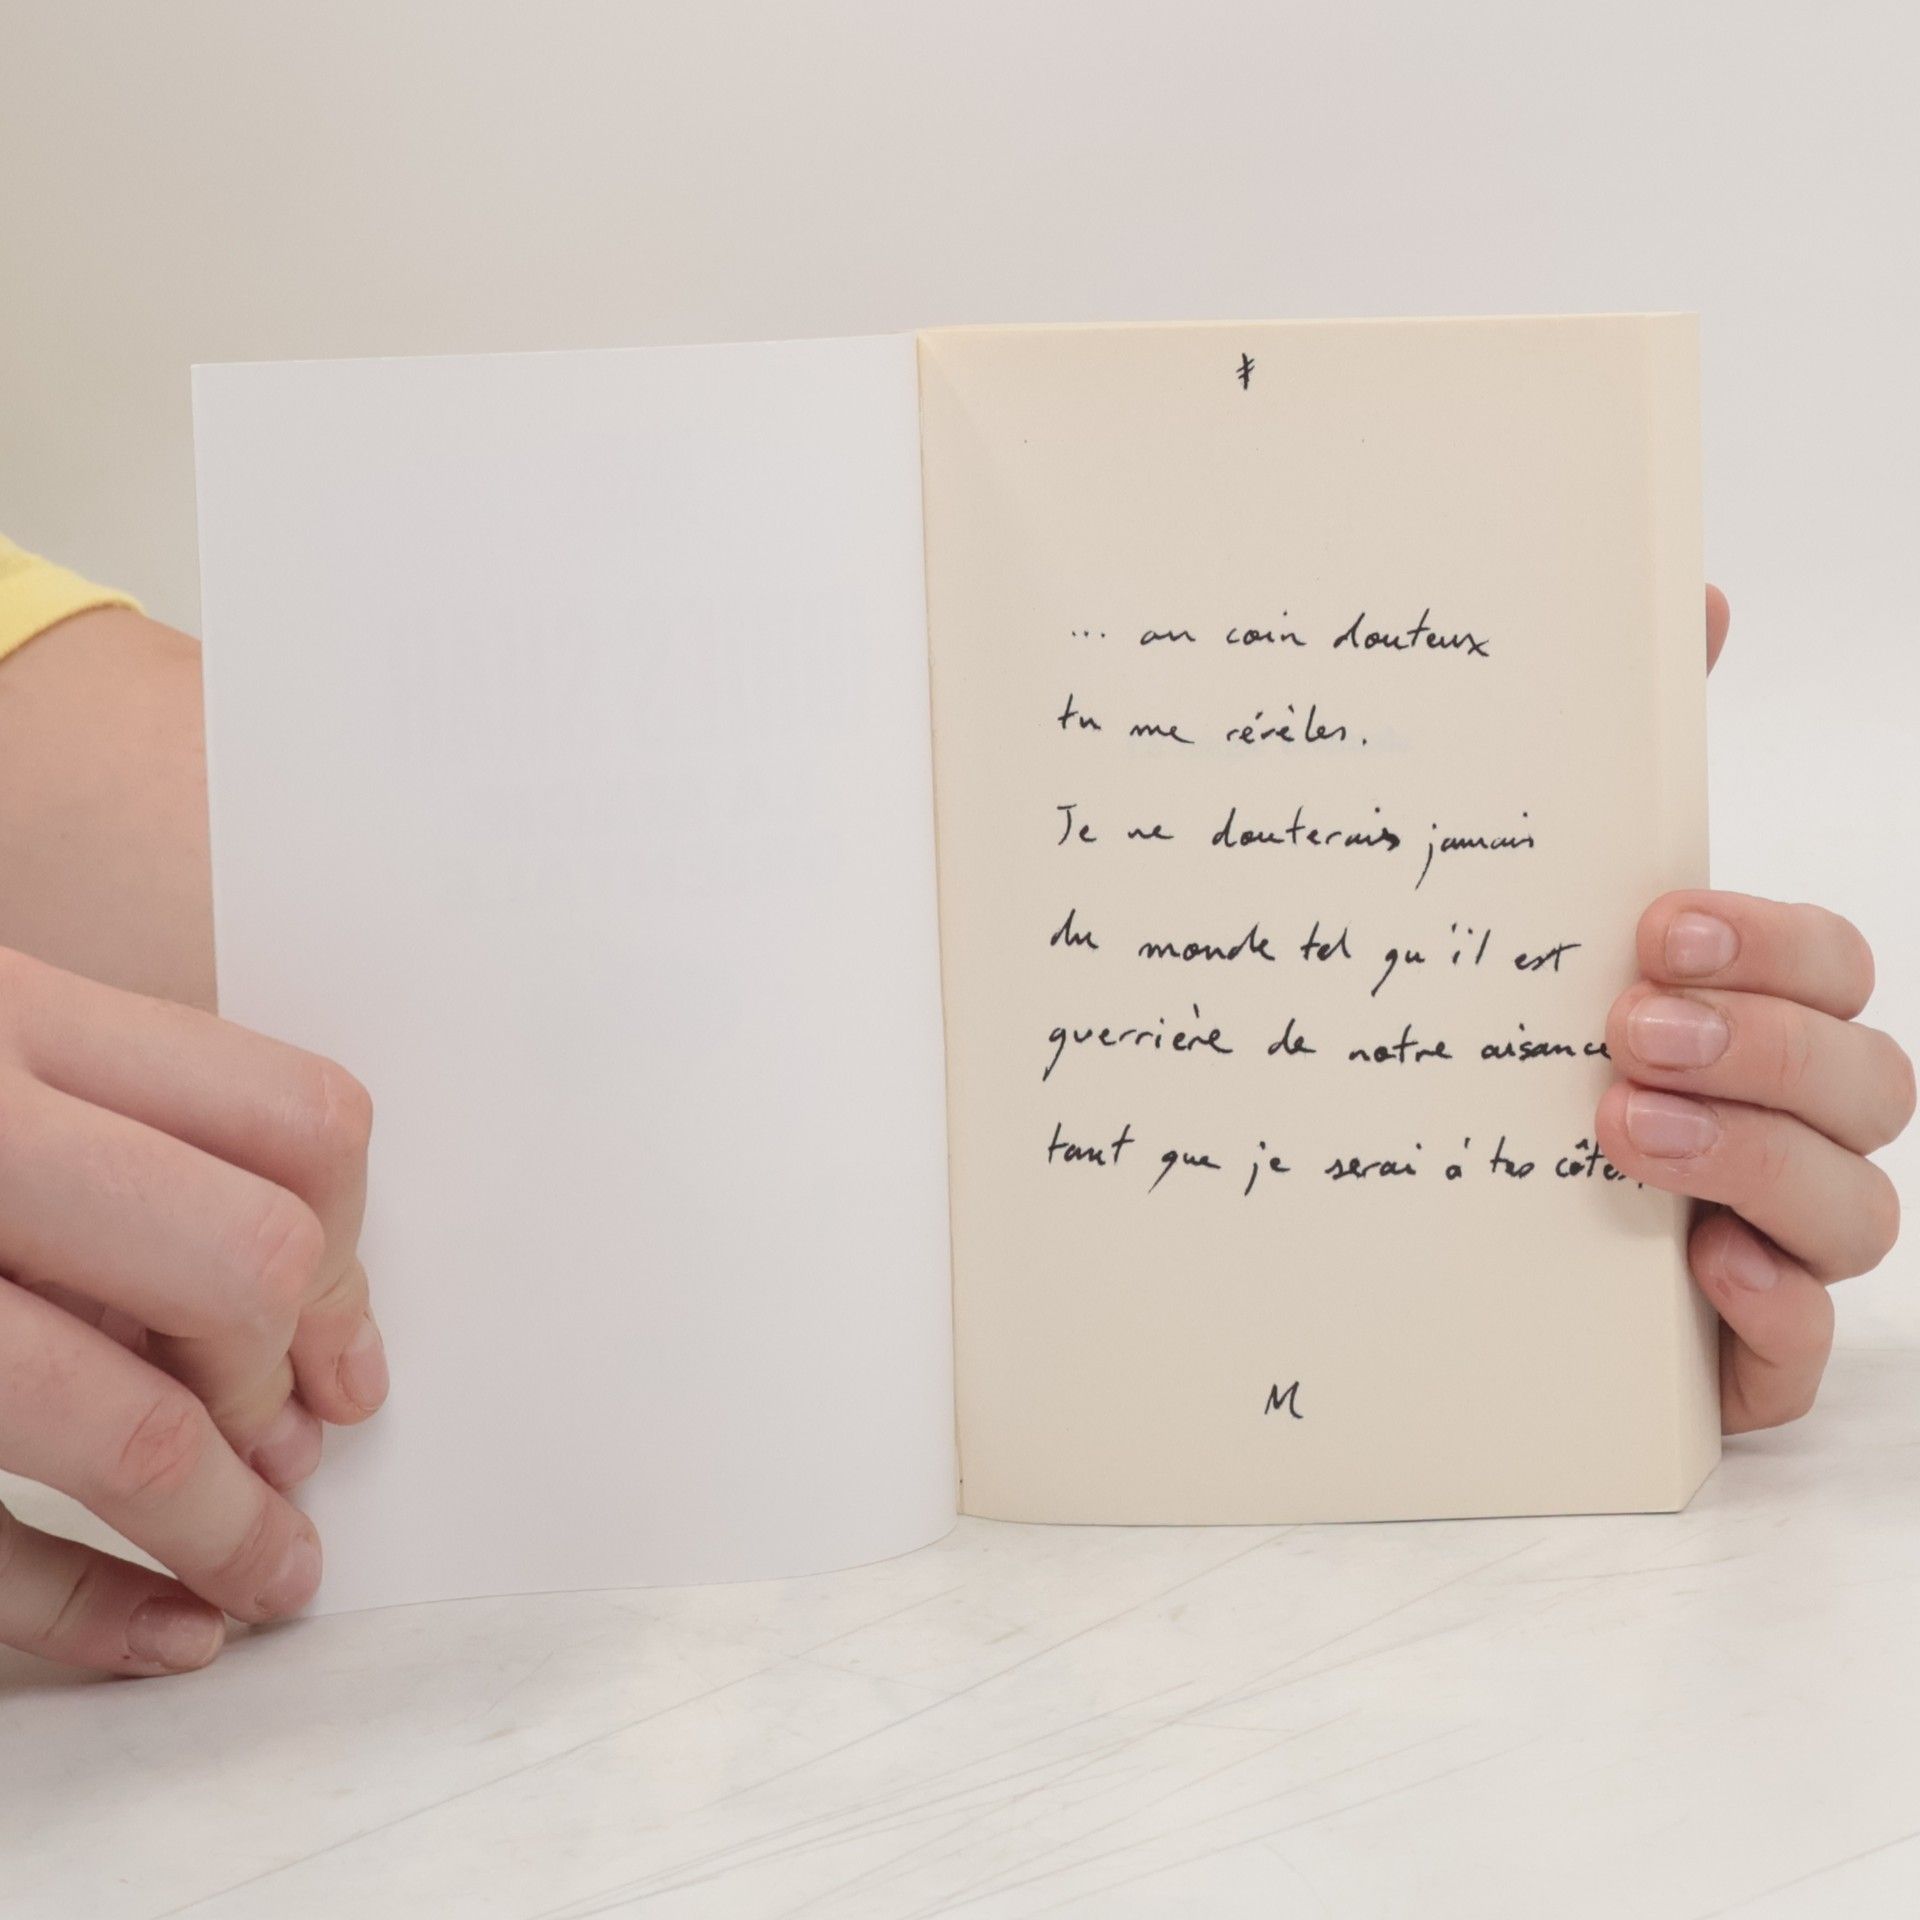 ... au coin douteux
tu me révèles.
Je ne douterais jamais
du monde tel qu'il est
guerrière de notre aisance
tant que je serai à tes côtés.
M